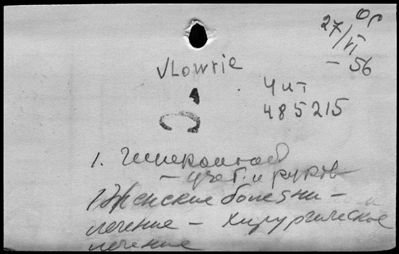 Ор
27/VI
– 56
VLowrie
Чит
485215
1. Гинекология
– учеб. и руков
Женские болезни –
лечение – хирургическое
лечение